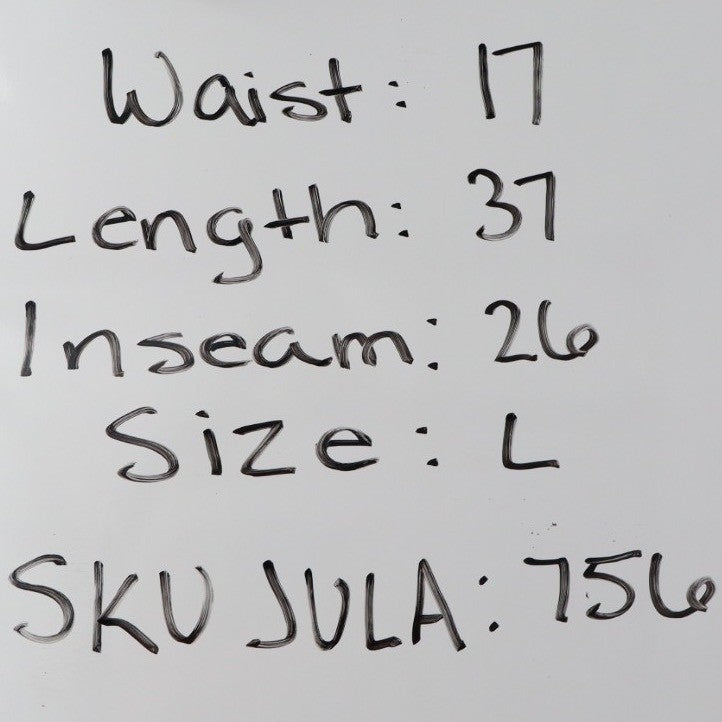 Waist: 17
Length: 37
Inseam: 26
Size: L
SKU JULA: 756